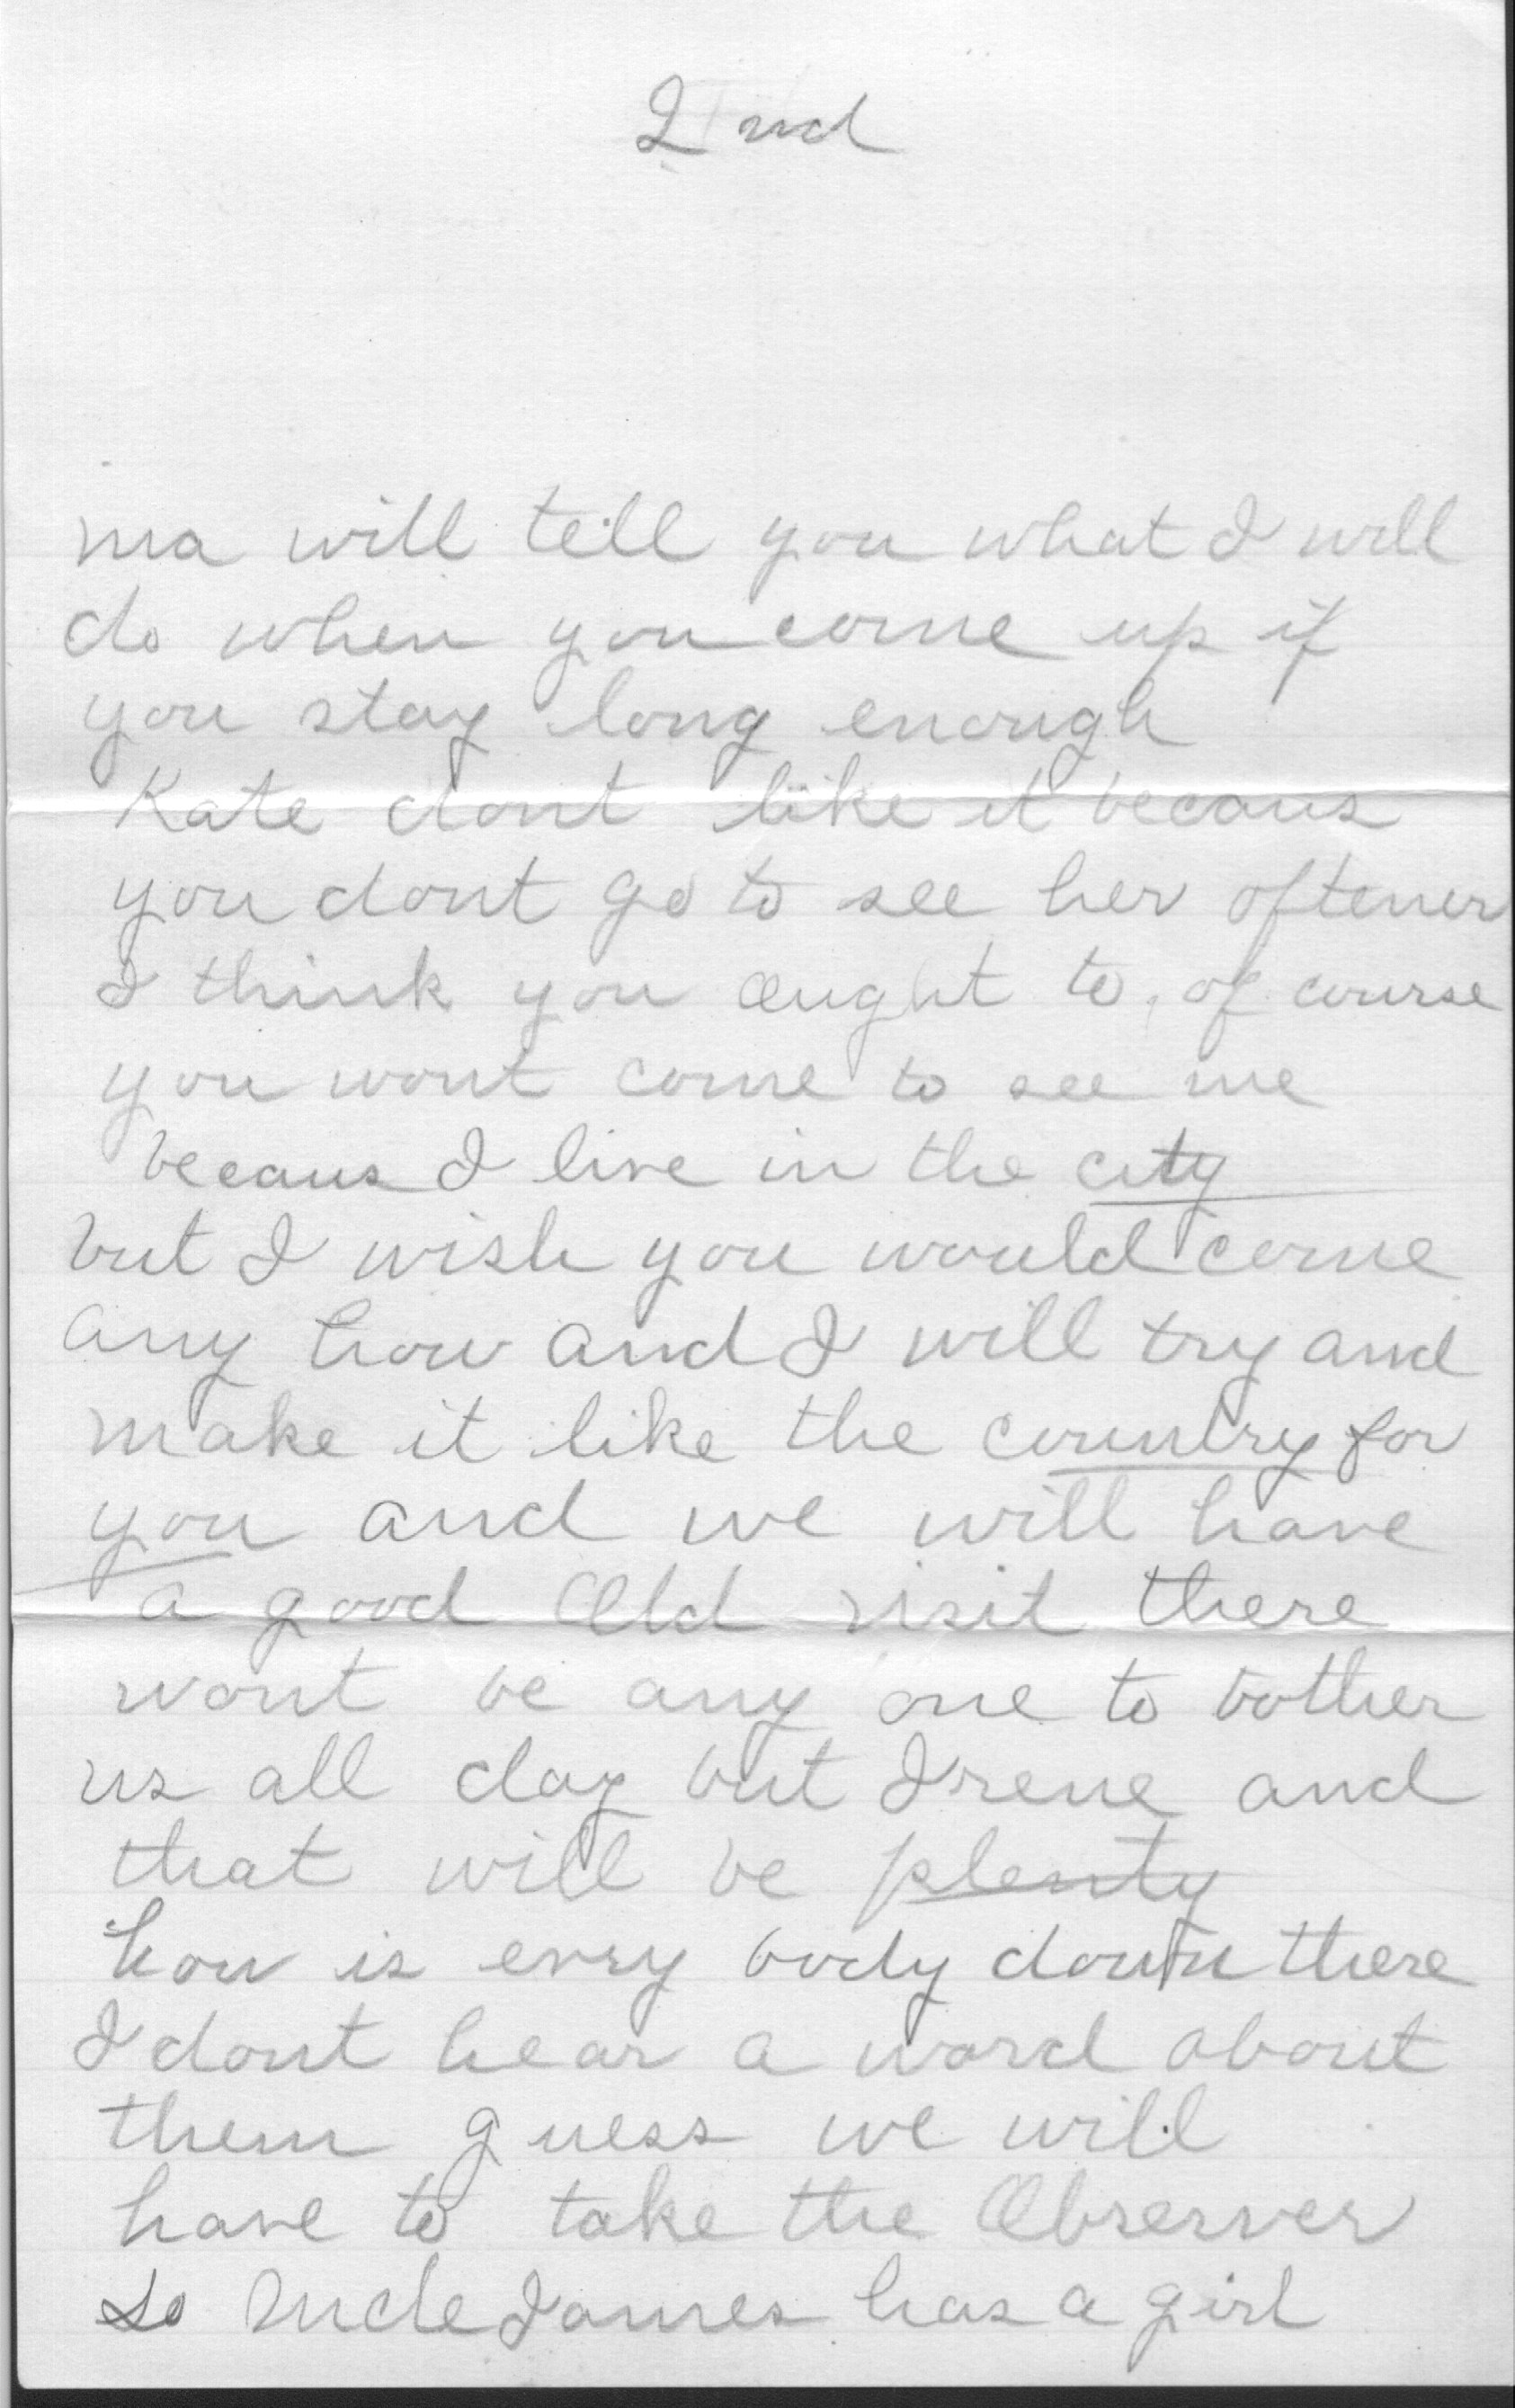 2nd
ma will tell you what I will
do when you come up if
you stay long enough
Kate dont like it becaus
you dont go to see her oftener
I think you ought to, of course
you wont come to see me
becaus I live in the city
but I wish you would come
any how and I will try and
make it like the country for
you and we will have
a good Old visit there
wont be any one to bother
us all day but Irene and
that will be plenty
how is evry body down there
I dont hear a word about
them guess we will
have to take the Observer
So Uncle James has a girl